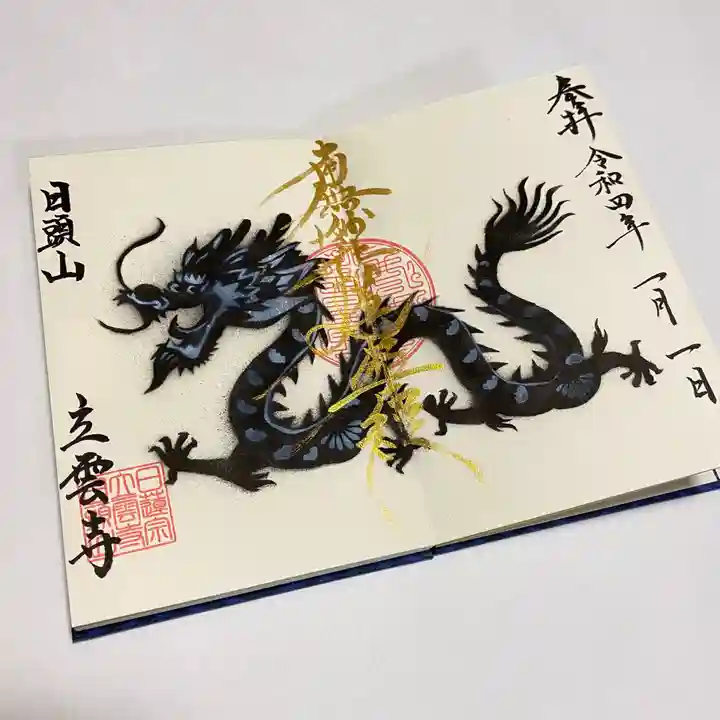 奉拝 令和四年 一月 一日
南無妙法蓮華経
日頭山
立雲寺
日蓮宗
立雲寺